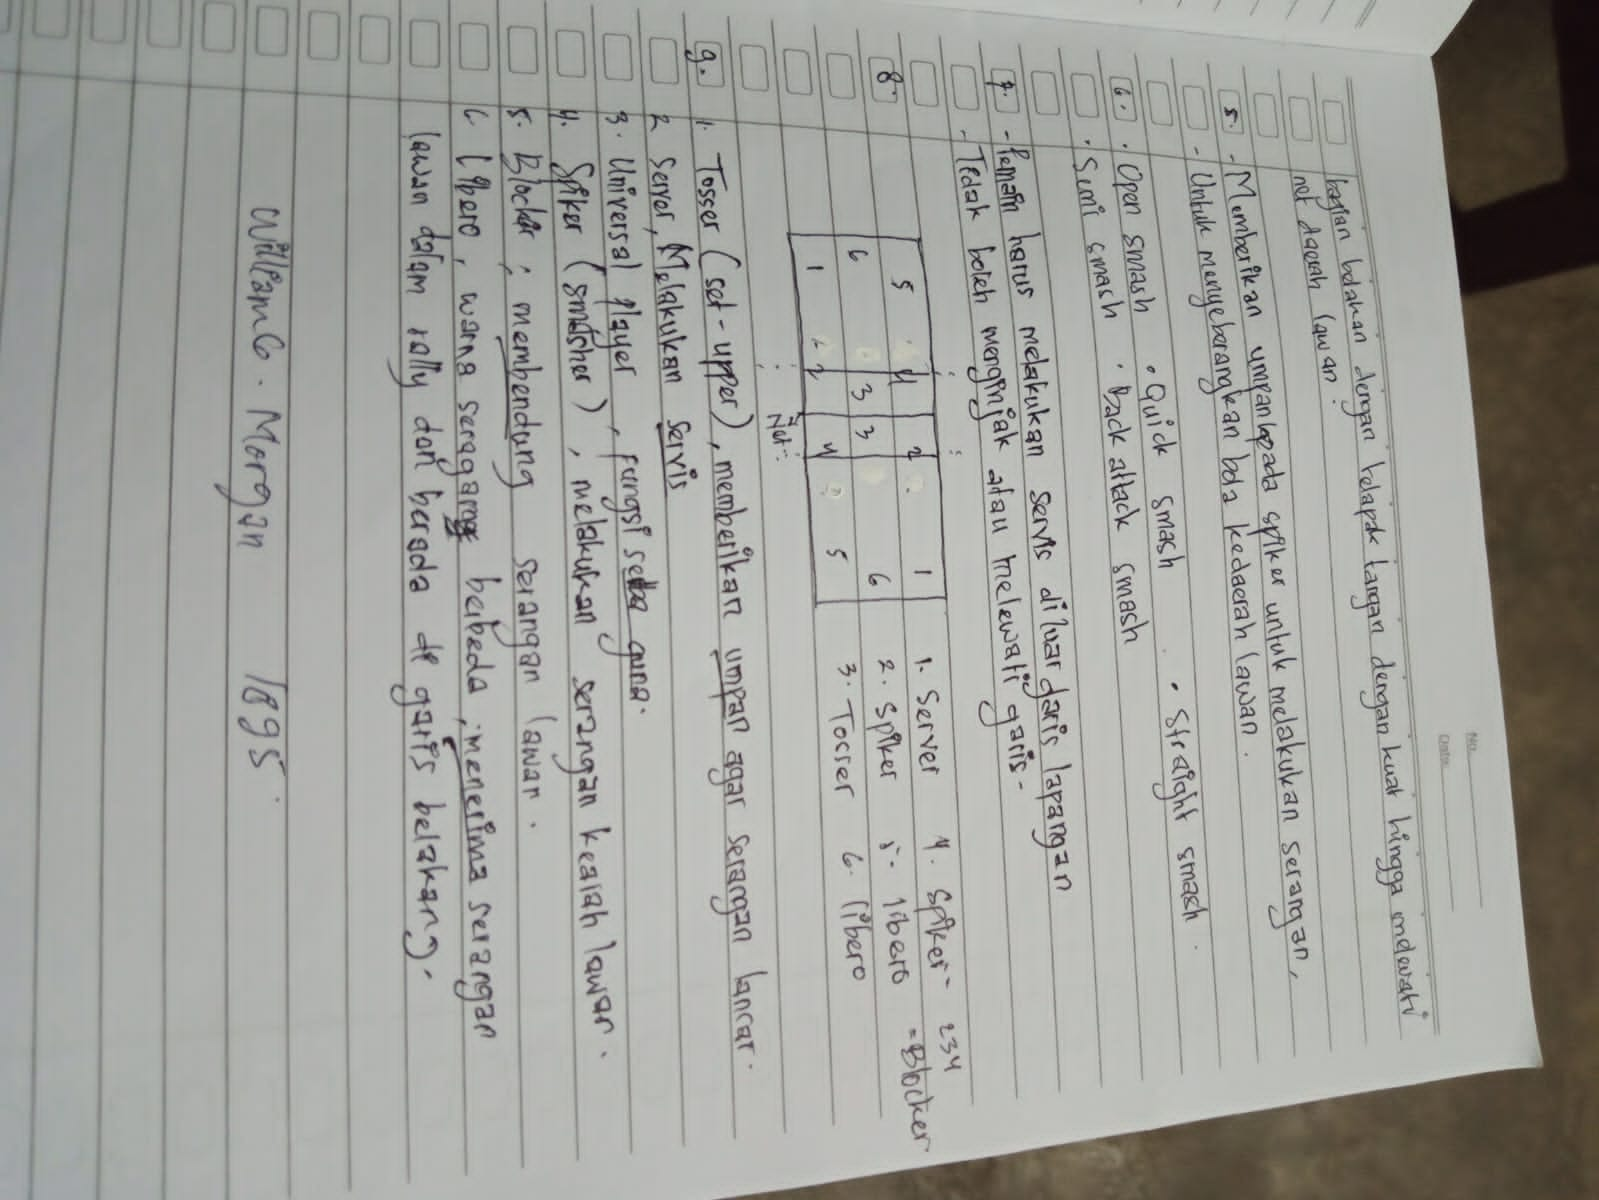 No.
Date
bagian belakan dengan telapak tangan dengan kuat hingga melewati
net daerah lawan.
5. - Memberikan umpan kpada spiker untuk melakukan serangan,
- Untuk menyebarangkan bola kedaerah lawan.
6. • Open smash • Quick smash • Straight smash.
• Semi smash • Back attack smash
7. - Pemain harus melakukan servis diluar daris lapangan
- Tidak boleh menginjak atau melewati garis.
8.
5 4 2 1
6 3 3 6
1 2 4 5
Net
1. Server 4. Spiker - 234
2. Spiker 5. libero = Blocker
3. Tosser 6. libero
9. 1. Tosser (set-upper), memberikan umpan agar serangan lancar.
2 Server, Melakukan servis
3. Universal player, fungsi serba guna.
4. Spiker (smasher), melakukan serangan kearah lawan.
5. Blocker; membendung serangan lawan.
6. Libero, warna seragam berbeda, menerima serangan
lawan dalam rally dan berada di garis belakang.
William G. Morgan 1895.